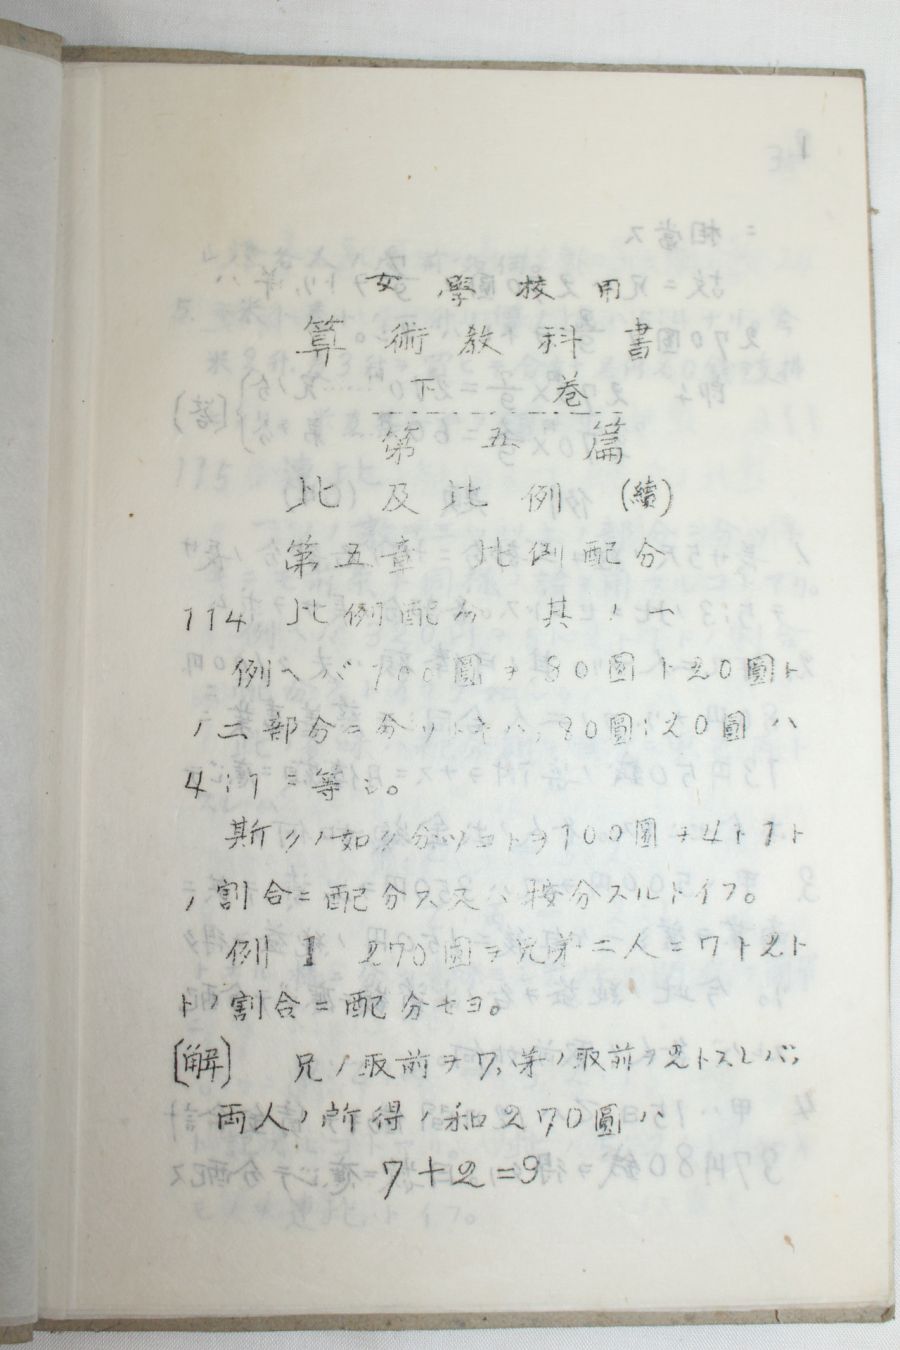 女學校用
算術教科書
下巻
第五篇
比及比例 (續)
第五章 比例配分
114 比例配分 其ノ一
例ヘバ100圓ヲ80圓ト20圓ト
ノ二部分ニ分ツトキハ,80圓:20圓ハ
4:1ニ等シ。
斯クノ如ク分ツコトヲ100圓ヲ4ト1ト
ノ割合ニ配分ス又ハ按分スルトイフ。
例 1 270圓ヲ兄弟二人ニ7ト2ト
トノ割合ニ配分セヨ。
[解] 兄ノ取前ヲ7,弟ノ取前ヲ2トスレバ,
両人ノ所得ノ和270圓ハ
7+2=9